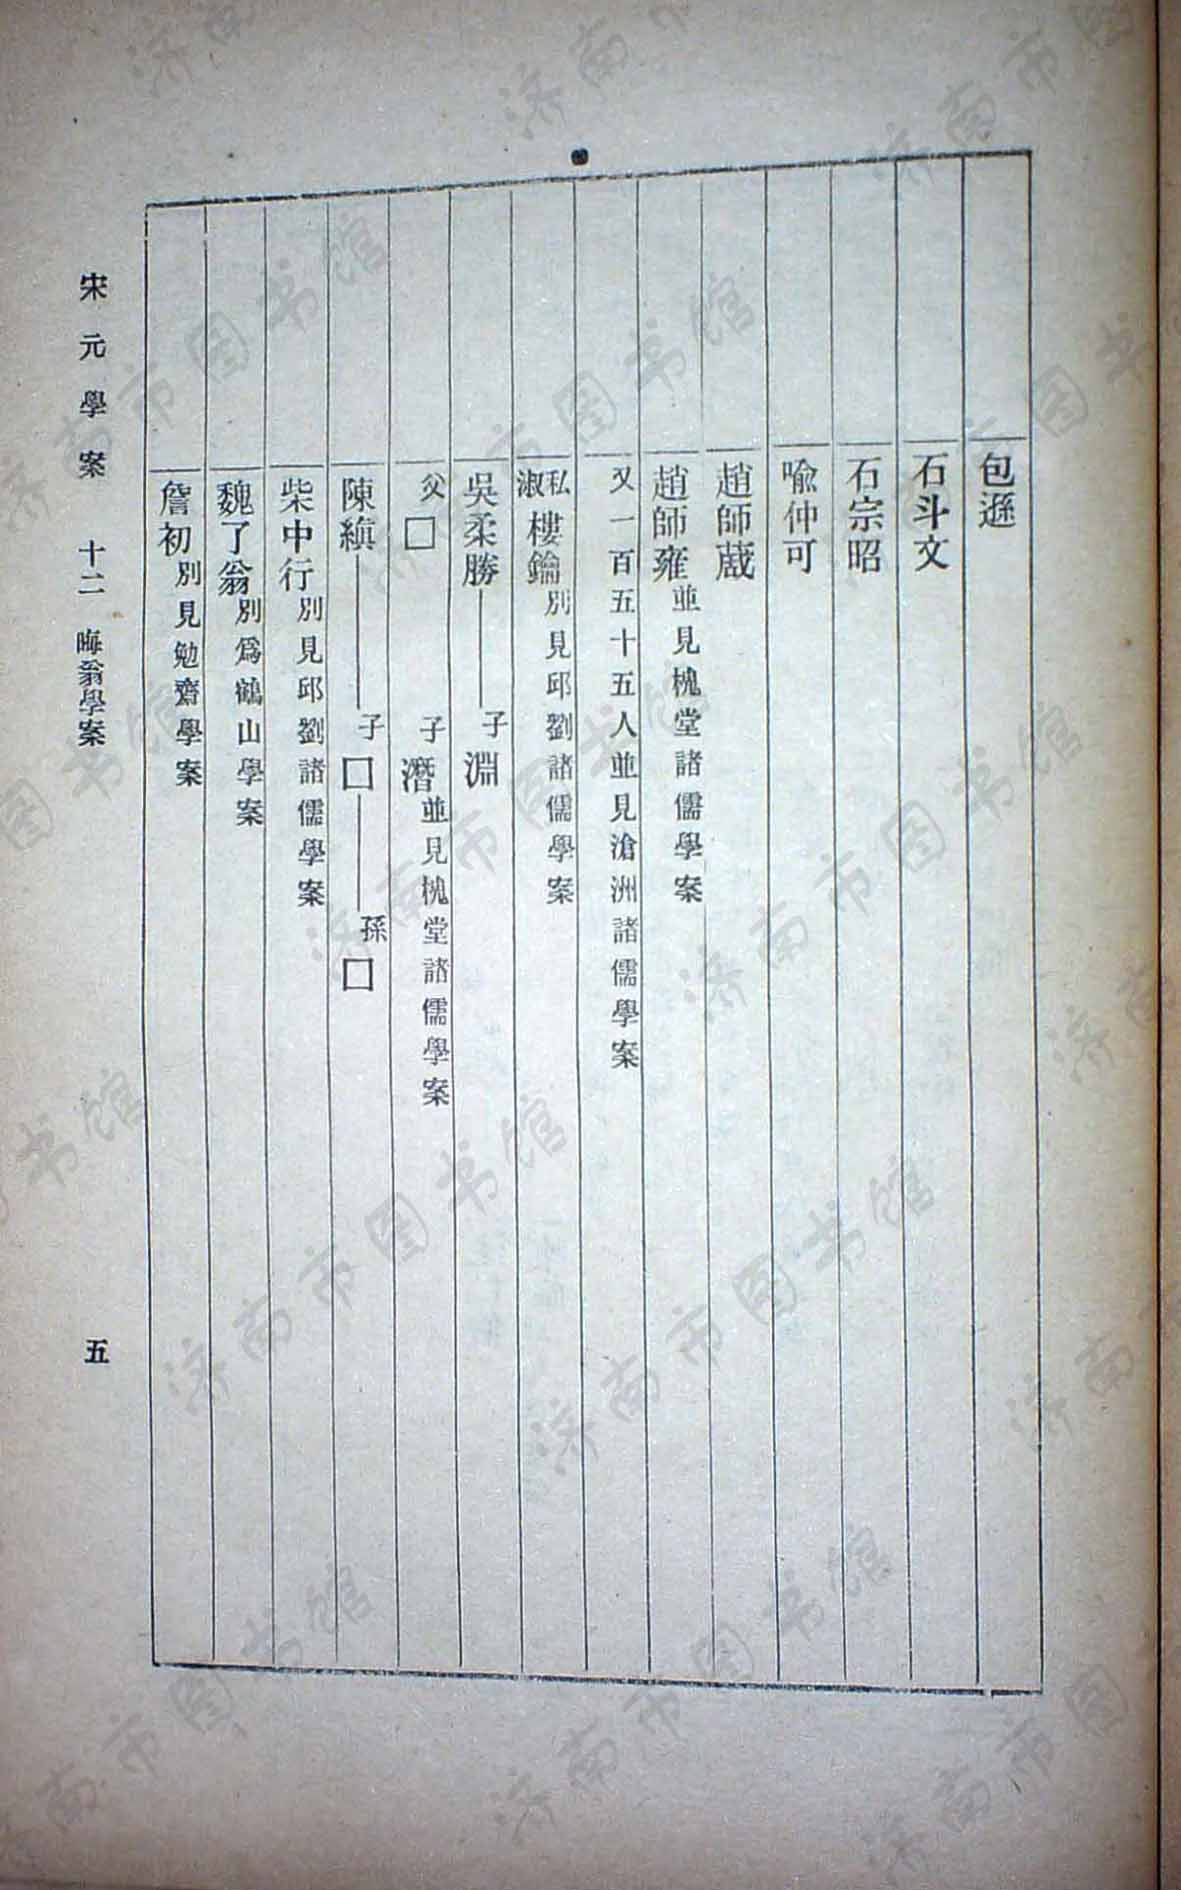 包遜
石斗文
石宗昭
喩仲可
趙師蒧
趙師雍並見槐堂諸儒學案
又一百五十五人並見滄洲諸儒學案
私淑樓鑰別見邱劉諸儒學案
吳柔勝 子淵
父□ 子濳並見槐堂諸儒學案
陳縝 子□ 孫□
柴中行別見邱劉諸儒學案
魏了翁別爲鶴山學案
詹初別見勉齋學案
宋元學案 十二 晦翁學案 五
济南市图书馆